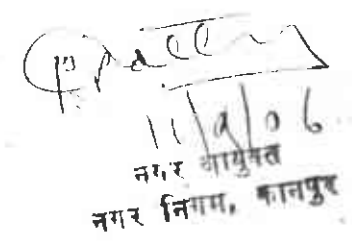 11/9/06
नगर आयुक्त
नगर निगम, कानपुर